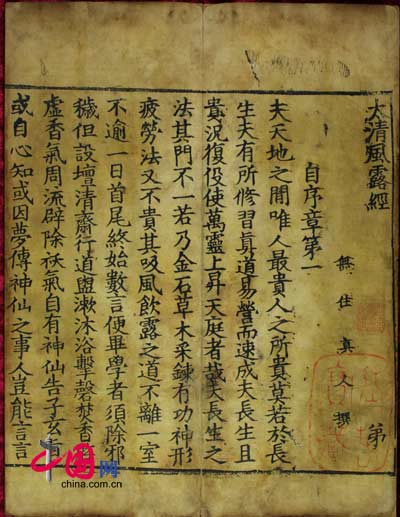 太清風露經
無住真人撰
第
自序章第一
夫天地之間唯人最貴人之所貴莫若於長
生夫有所修習真道易營而速成夫長生且
貴況復役使萬靈上昇天庭者哉夫長生之
法其門不一若乃金石草木采鍊有功神形
疲勞法又不貴其吸風飲露之道不離一室
不逾一日首尾終始數言使畢學者須除邪
穢但設壇清齋行道盥漱沐浴擊磬焚香
虛香氣周流辟除祅氣自有神仙告子玄
或自心知或因夢傳神仙之事人豈能言言
中国网
china.com.cn